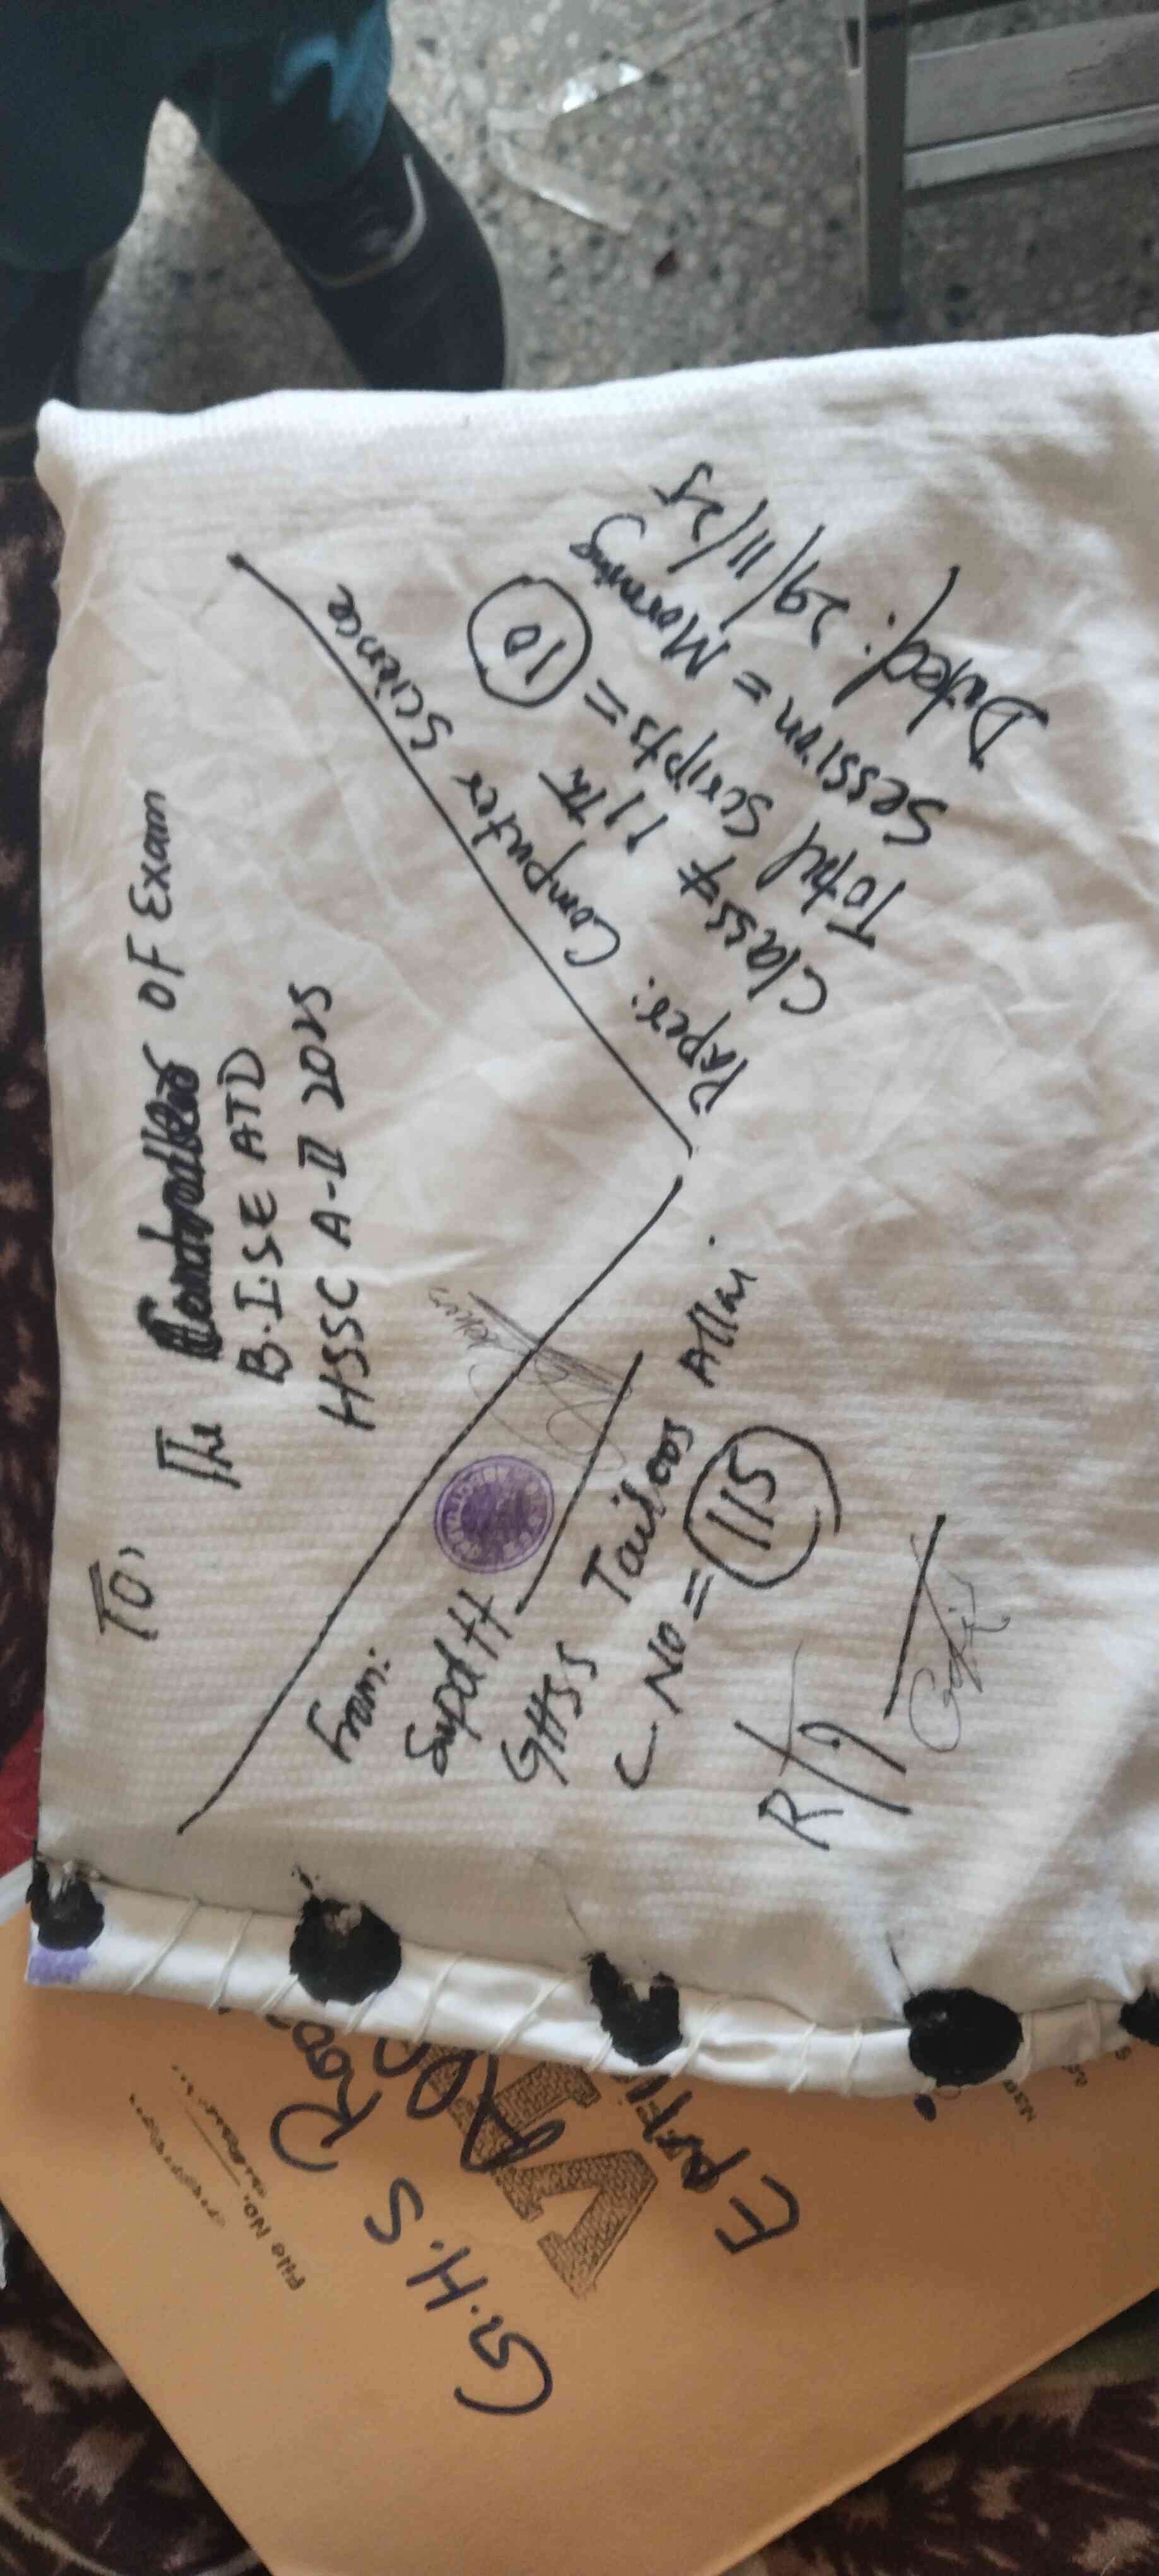 To,
The Controller OF Exam
B.I.SE ATD
HSSC A-II 2025
From:
Supdtt
GHSS Tailoos Allai.
C-NO = 115
R/9
Paper: Computer Science
Class # 11th
Total Scripts = 10
Session = Morning
Dated: 29/11/25
G.H.S
File No.